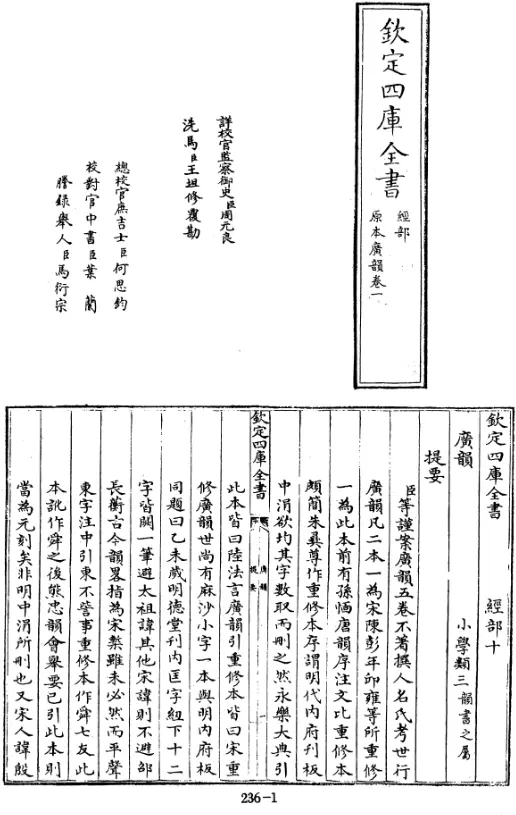 欽定四庫全書
經部
原本廣韻卷一
詳校官監察御史臣周元良
洗馬臣王坦修覆勘
總校官庶吉士臣何思鈞
校對官中書臣葉蘭
謄錄舉人臣馬衍宗
欽定四庫全書 經部十
廣韻 小學類三韻書之屬
提要
臣等謹案廣韻五卷不著撰人名氏考世行
廣韻凡二本一為宋陳彭年邱雍等所重修
一為此本前有孫愐唐韻序注文比重修本
頗簡朱彝尊作重修本序謂明代內府刋板
中涓欲均其字數取而刪之然永樂大典引
欽定四庫全書
廣韻
提要
此本皆曰陸法言廣韻引重修本皆曰宋重
修廣韻世尚有麻沙小字一本與明內府板
同題曰乙未歲明德堂刊內匡字紐下十二
字皆闕一筆避太祖諱其他宋諱則不避邵
長蘅古今韻畧指為宋槧雖未必然而平聲
東字注中引東不訾事重修本作舜七友此
本訛作舜之後熊忠韻會舉要已引此本則
當為元刻矣非明中涓所刪也又宋人諱殷
236-1